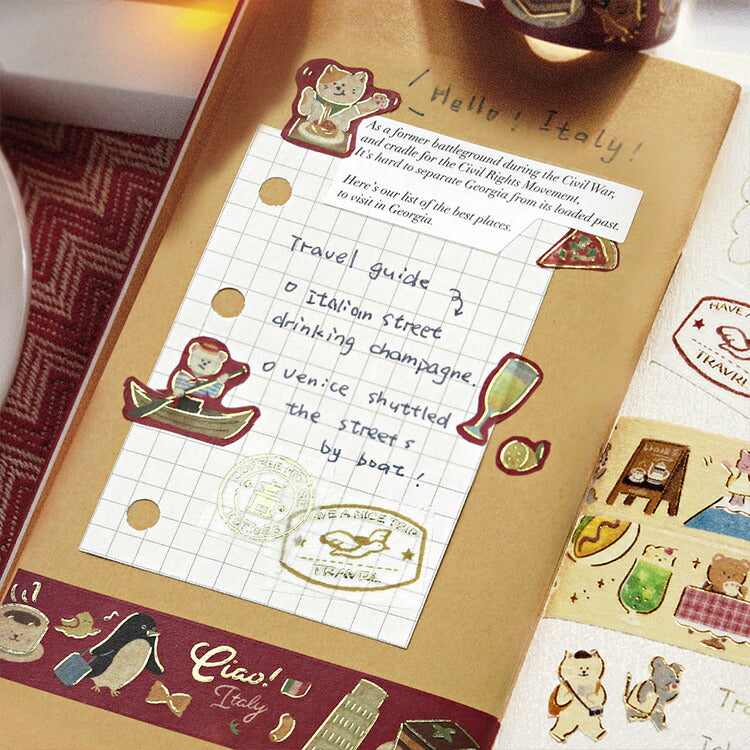 Hello! Italy!
As a former battleground during the Civil War,
and cradle for the Civil Rights Movement,
It's hard to separate Georgia from its loaded past.
Here's our list of the best places.
to visit in Georgia.
Travel guide
o Italian street
drinking champagne.
o venice shuttled
the streets
by boat!
HAVE A NICE TRIP
TRAVEL
Ciao!
Italy
HAVE
TRAVEL
Tra